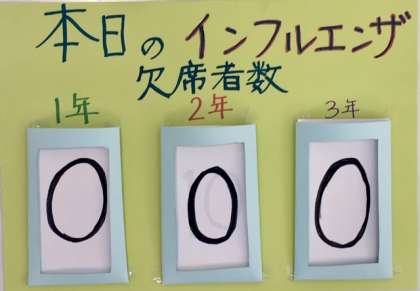 本日のインフルエンザ
欠席者数
1年 2年 3年
0 0 0